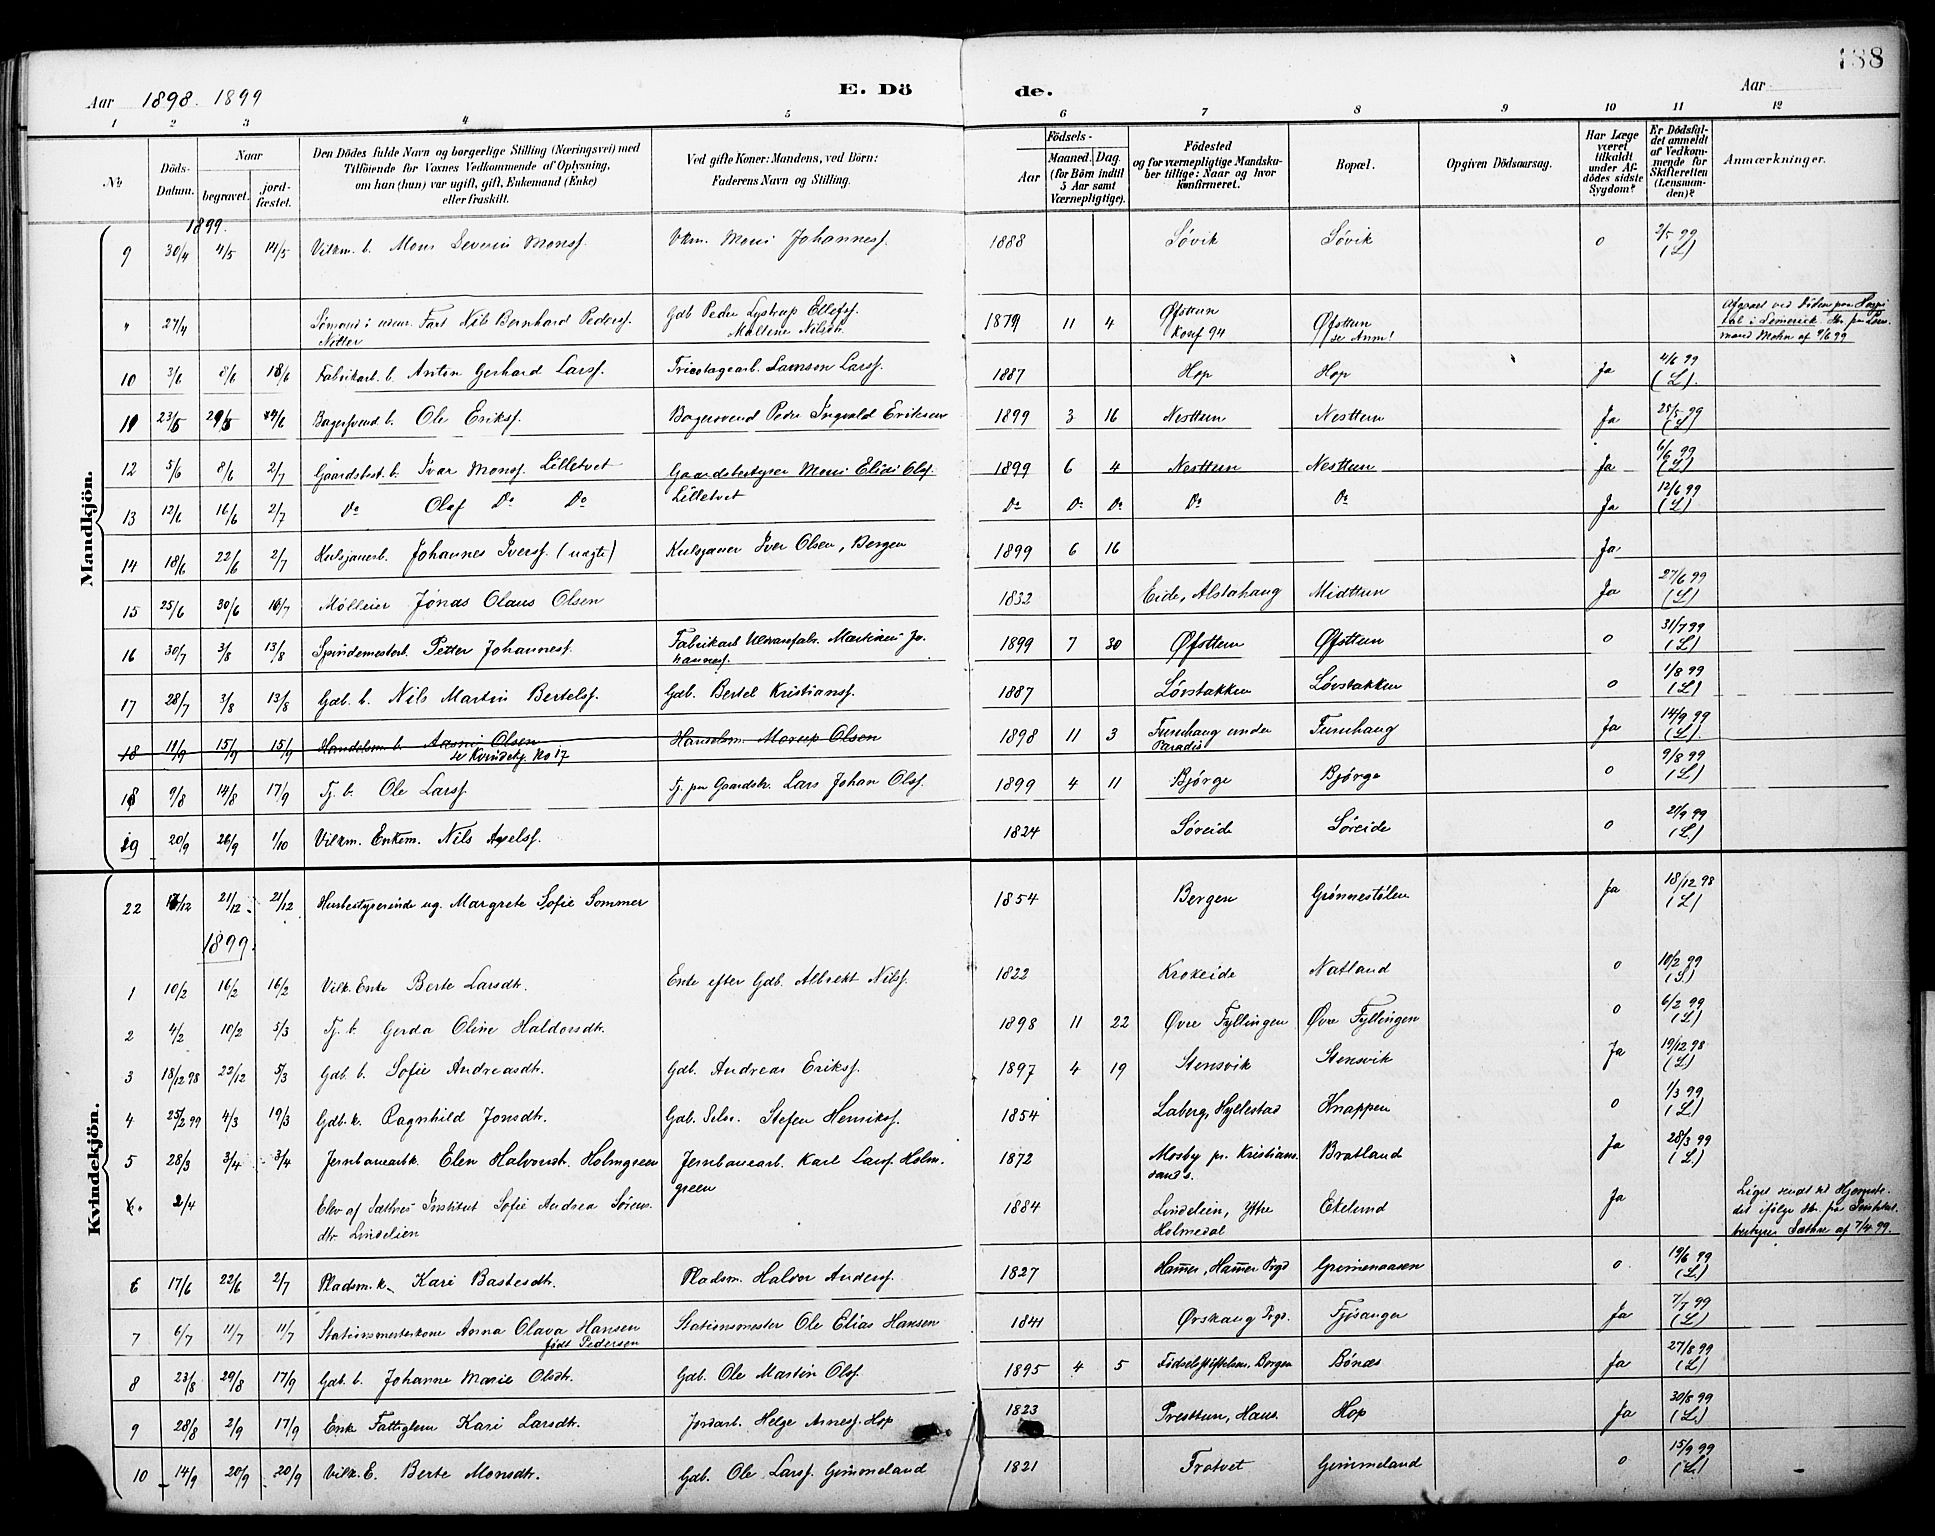 188
Aar 1898. 1899 E. Dö de. Aar
1 2 3 4 5 6 7 8 9 10 11 12
No
Döds-Datum.
Naar
begravet.
jordfæstet.
Den Dödes fulde Navn og borgerlige Stilling (Næringsvei) med
Tilföiende for Voxnes Vedkommende af Oplysning,
om han (hun) var ugift, gift, Enkemand (Enke)
eller fraskilt.
Ved gifte Koner: Mandens, ved Börn:
Faderens Navn og Stilling.
Födsels-
Aar
Maaned.
Dag.
(for Börn indtil
5 Aar samt
Værnepligtige).
Födested
og for værnepligtige Mandsku-
ber tillige: Naar og hvor
konfirmeret.
Bopæl.
Opgiven Dödsaarsag.
Har Læge
været
tilkaldt
under Af-
dödes sidste
Sygdom?
Er Dödsfal-
det anmeldt
af Vedkom-
mende for
Skifteretten
(Lensman-
den)?
Anmærkninger.
Mandkjön.
1899.
9 30/4 4/5 14/5 Vilkm. b. Mons Severin Monsf. Vkm. Mons Johannesf. 1888 Søvik Søvik o 2/5 99 (L)
" 27/4 Sömand i uden. Fart Nils Bernhard Pedersf. Gdb Peder Lystrup Ellefsf. 1879 11 4 Øfsttun Konf 94 Øfsttun (se Anm!
Malene Nilsdr.
10 3/6 8/6 18/6 Fabrikarb. b. Anton Gerhard Larsf. Tricotagearb. Samson Larsf. 1887 Hop Hop Ja 4/6 99 (L).
11 23/5 29/5 4/6 Bagersvend b. Ole Eriksf. Bagersvend Peder Ingvald Eriksen 1899 3 16 Nesttun Nesttun Ja 25/5 99 (L)
12 5/6 8/6 2/7 Gaardsbest. b. Ivar Monsf. Lilletvet Gaardsbestyrer Mons Elias Olsf. 1899 6 4 Nesttun Nesttun Ja 6/6 99 (L)
Lilletvet
13 12/6 16/6 2/7 Do Olaf Do Do Do Do Do Do Do Ja 12/6 99 (L)
14 18/6 22/6 2/7 Kulsjauerb. Johannes Iversf. (uægte) Kulsjauer Iver Olsen, Bergen 1899 6 16 Ja
15 25/6 30/6 16/7 Mølleier Jonas Olaus Olsen 1832 Eide, Alstahaug Midttun Ja 27/6 99 (L)
16 30/7 3/8 13/8 Spindemesterb. Petter Johannesf. 1899 7 30 Øfsttun Øfsttun o 31/7 99 (L)
17 28/7 3/8 13/8 Gdb. b. Nils Martin Bertelsf. Gdb. Bertel Kristiansf. 1887 Løvstakken Løvstakken o 1/8 99 (L)
18 11/9 15/9 15/9 Handelsm. b. Olsen Handelsm. Olsen 1898 11 3 Furuhaug under Paradis Furuhaug Ja 14/9 99 (L)
se Kvindekj. No 17
18 9/8 14/8 17/9 Tj. b. Ole Larsf. Tj. paa Gaardsbr. Lars Johan Olsf. 1899 4 11 Bjørge Bjørge o 9/8 99 (L)
19 20/9 26/9 1/10 Vilkm. Enkem. Nils Axelsf. 1824 Søreide Søreide o 21/9 99 (L.)
Kvindekjön.
22 17/12 21/12 21/12 Husbestyrerinde ug. Margrete Sofie Sommer 1854 Bergen Grønnestølen Ja 18/12 98 (L)
1899.
1 10/2 16/2 16/2 Vilk. Enke Berte Larsdtr. Enke efter Gdb. Albrekt Nilsf. 1822 Krokeide Natland o 10/2 99 (S)
2 4/2 10/2 5/3 Tj. b. Gerda Oline Haldorsdtr. 1898 11 22 Øvre Fyllingen Øvre Fyllingen o 6/2 99 (L)
3 18/12 98 22/12 5/3 Gdb. b. Sofie Andreasdtr. Gdb. Andreas Eriksf. 1897 4 19 Stensvik Stensvik Ja 19/12 98 (L)
4 25/2 99 4/3 19/3 Gdb. k. Ragnhild Jonsdtr. Gdb. Stefen Henriksf. 1854 Laberg, Hyllestad Knappen o 1/3 99 (L)
5 28/3 3/4 3/4 Jernbanearbk. Elen Halvorsdtr. Holmgreen Jernbanearb. Karl Larsf. Holm- 1872 Mosby pr. Kristians- Bratland Ja 28/3 99 (L.)
green sand s.
2/4 Elev af Sæthres Institut Sofie Andrea Sörens- 1884 Lindelien, Ytre Ekelund Ja
dtr. Lindelien Holmedal
6 17/6 22/6 2/7 Pladsm. k. Kari Bastesdtr. Pladsm. Halvor Andersf. 1827 Hammer, Hammer Prgd Grimenaasen o 19/6 99 (L.)
7 6/7 11/7 11/7 Stationsmesterkone Anna Olava Hansen Stationsmester Ole Elias Hansen 1841 Ørskaug Prgd. Fjøsanger Ja 7/7 99 (L)
født Pedersen
8 23/8 29/8 17/9 Gdb. b. Johanne Marie Olsdtr. Gdb. Ole Martin Olsf. 1895 4 5 Fødselsstiftelsen, Bergen Bönæs Ja 27/8 99 (L)
9 28/8 2/9 17/9 Enke Fattiglem Kari Larsdtr. Jordarb. Helge Arnesf. Hop 1823 Presttun, Haus. Hop Ja 30/8 99 (L.)
10 14/9 20/9 20/9 Vilk. E. Berte Monsdtr. Gdb. Ole Larsf. Gimmeland 1821 Trotvet Gimmeland o 15/9 99 (L.)